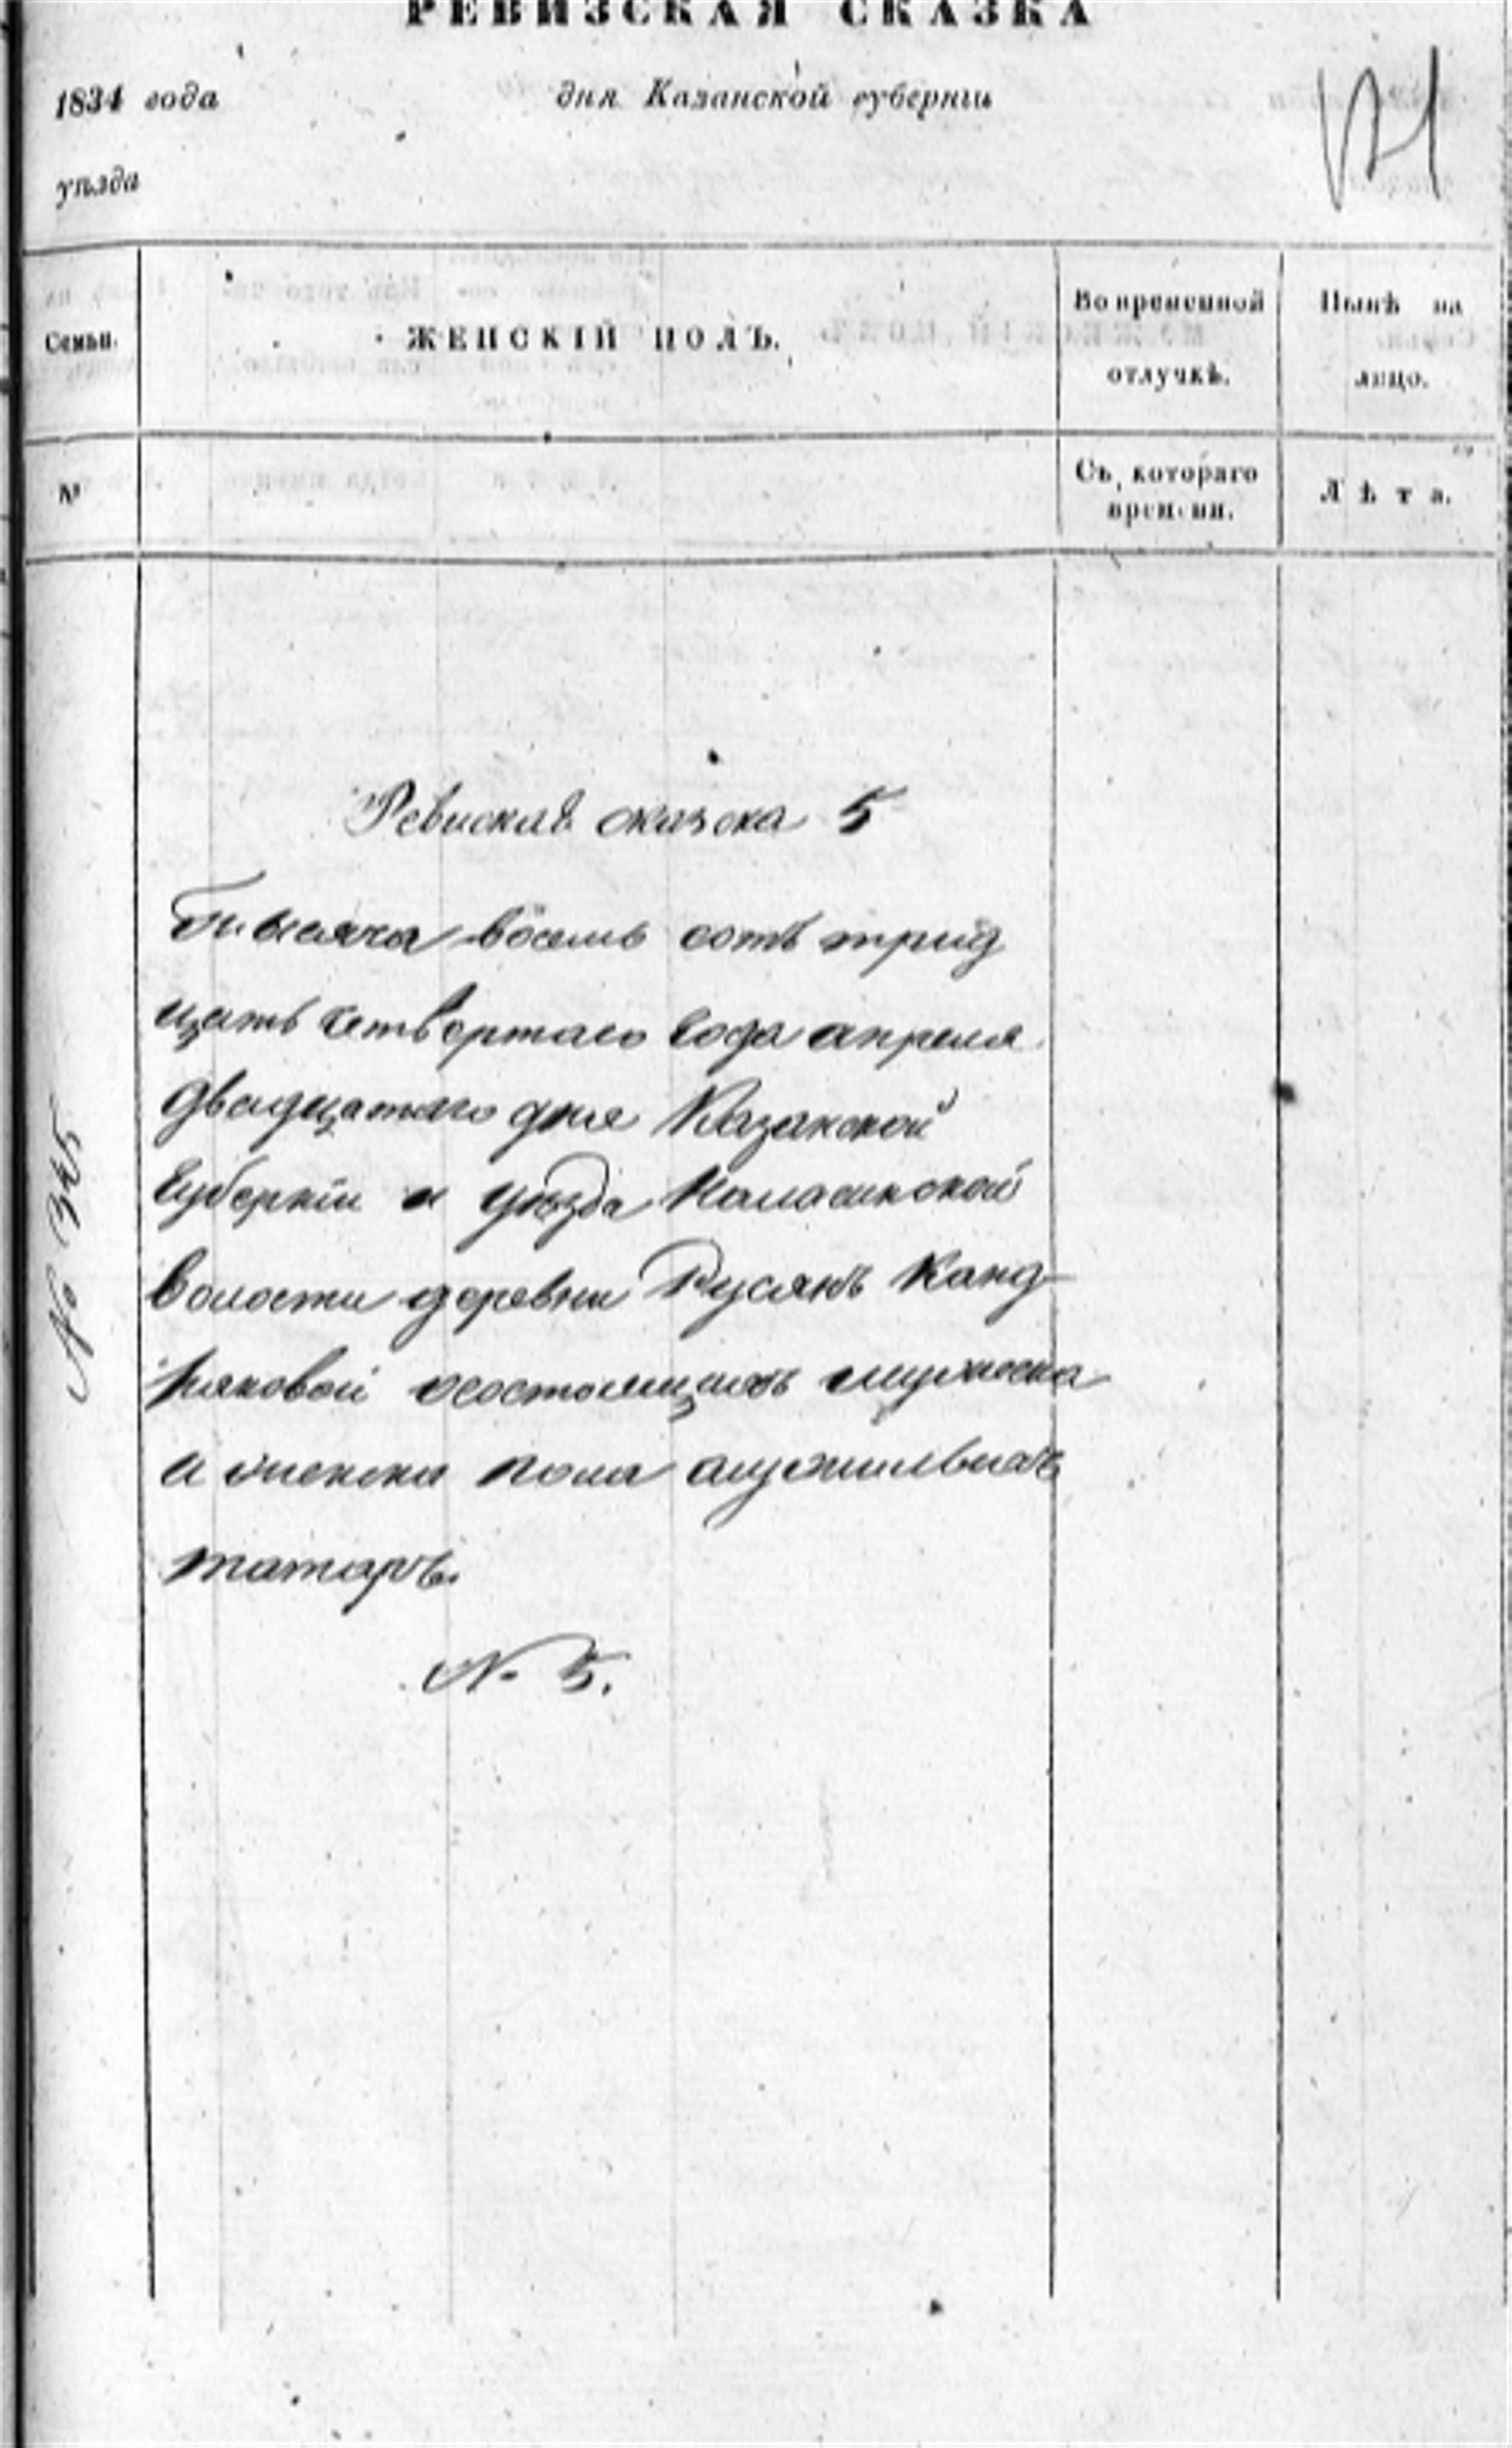 РЕВИЗСКАЯ СКАЗКА
1834 года дня Казанской губернiи
уѣзда
Семьи. ЖЕНСКIЙ ПОЛЪ. Во временной отлучкѣ. Нынѣ на лицо.
№ Съ котораго времени. Лѣта.
Ревиская сказска 5
Тысяча восемь сотъ трид
цать четвертаго года апреля
двадцатаго дня Казанской
Губернiи и уѣзда
волости деревни Русякъ Канд
няковой осостоящихъ мужеска
и женска пола служилыхъ
татаръ.
№ 5.